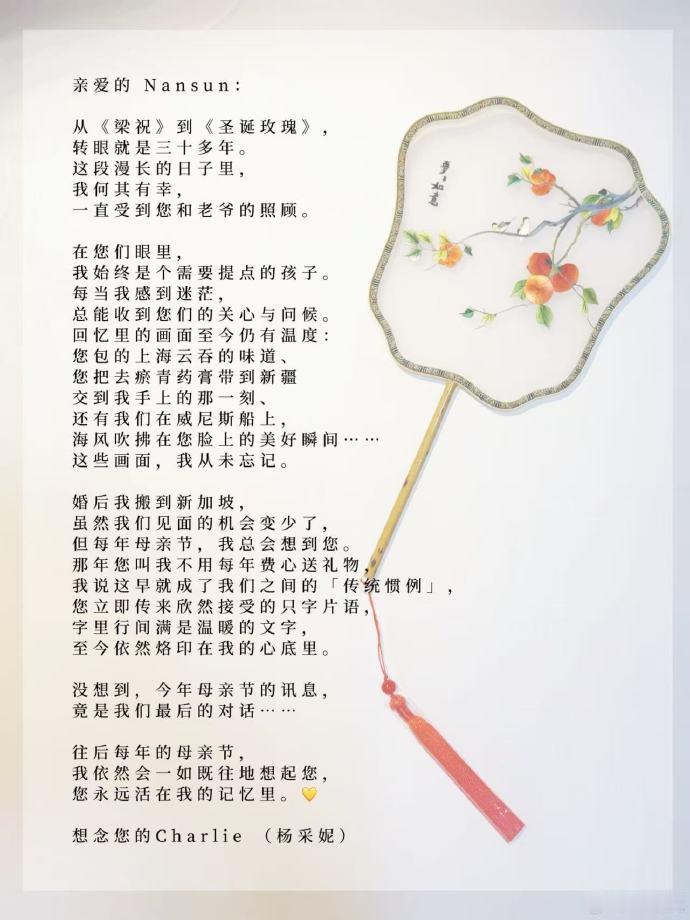 亲爱的 Nansun：
从《梁祝》到《圣诞玫瑰》，
转眼就是三十多年。
这段漫长的日子里，
我何其有幸，
一直受到您和老爷的照顾。
在您们眼里，
我始终是个需要提点的孩子。
每当我感到迷茫，
总能收到您们的关心与问候。
回忆里的画面至今仍有温度：
您包的上海云吞的味道、
您把去瘀青药膏带到新疆
交到我手上的那一刻、
还有我们在威尼斯船上，
海风吹拂在您脸上的美好瞬间……
这些画面，我从未忘记。
婚后我搬到新加坡，
虽然我们见面的机会变少了，
但每年母亲节，我总会想到您。
那年您叫我不用每年费心送礼物，
我说这早就成了我们之间的「传统惯例」，
您立即传来欣然接受的只字片语，
字里行间满是温暖的文字，
至今依然烙印在我的心底里。
没想到，今年母亲节的讯息，
竟是我们最后的对话……
往后每年的母亲节，
我依然会一如既往地想起您，
您永远活在我的记忆里。💛
想念您的Charlie （杨采妮）
如意